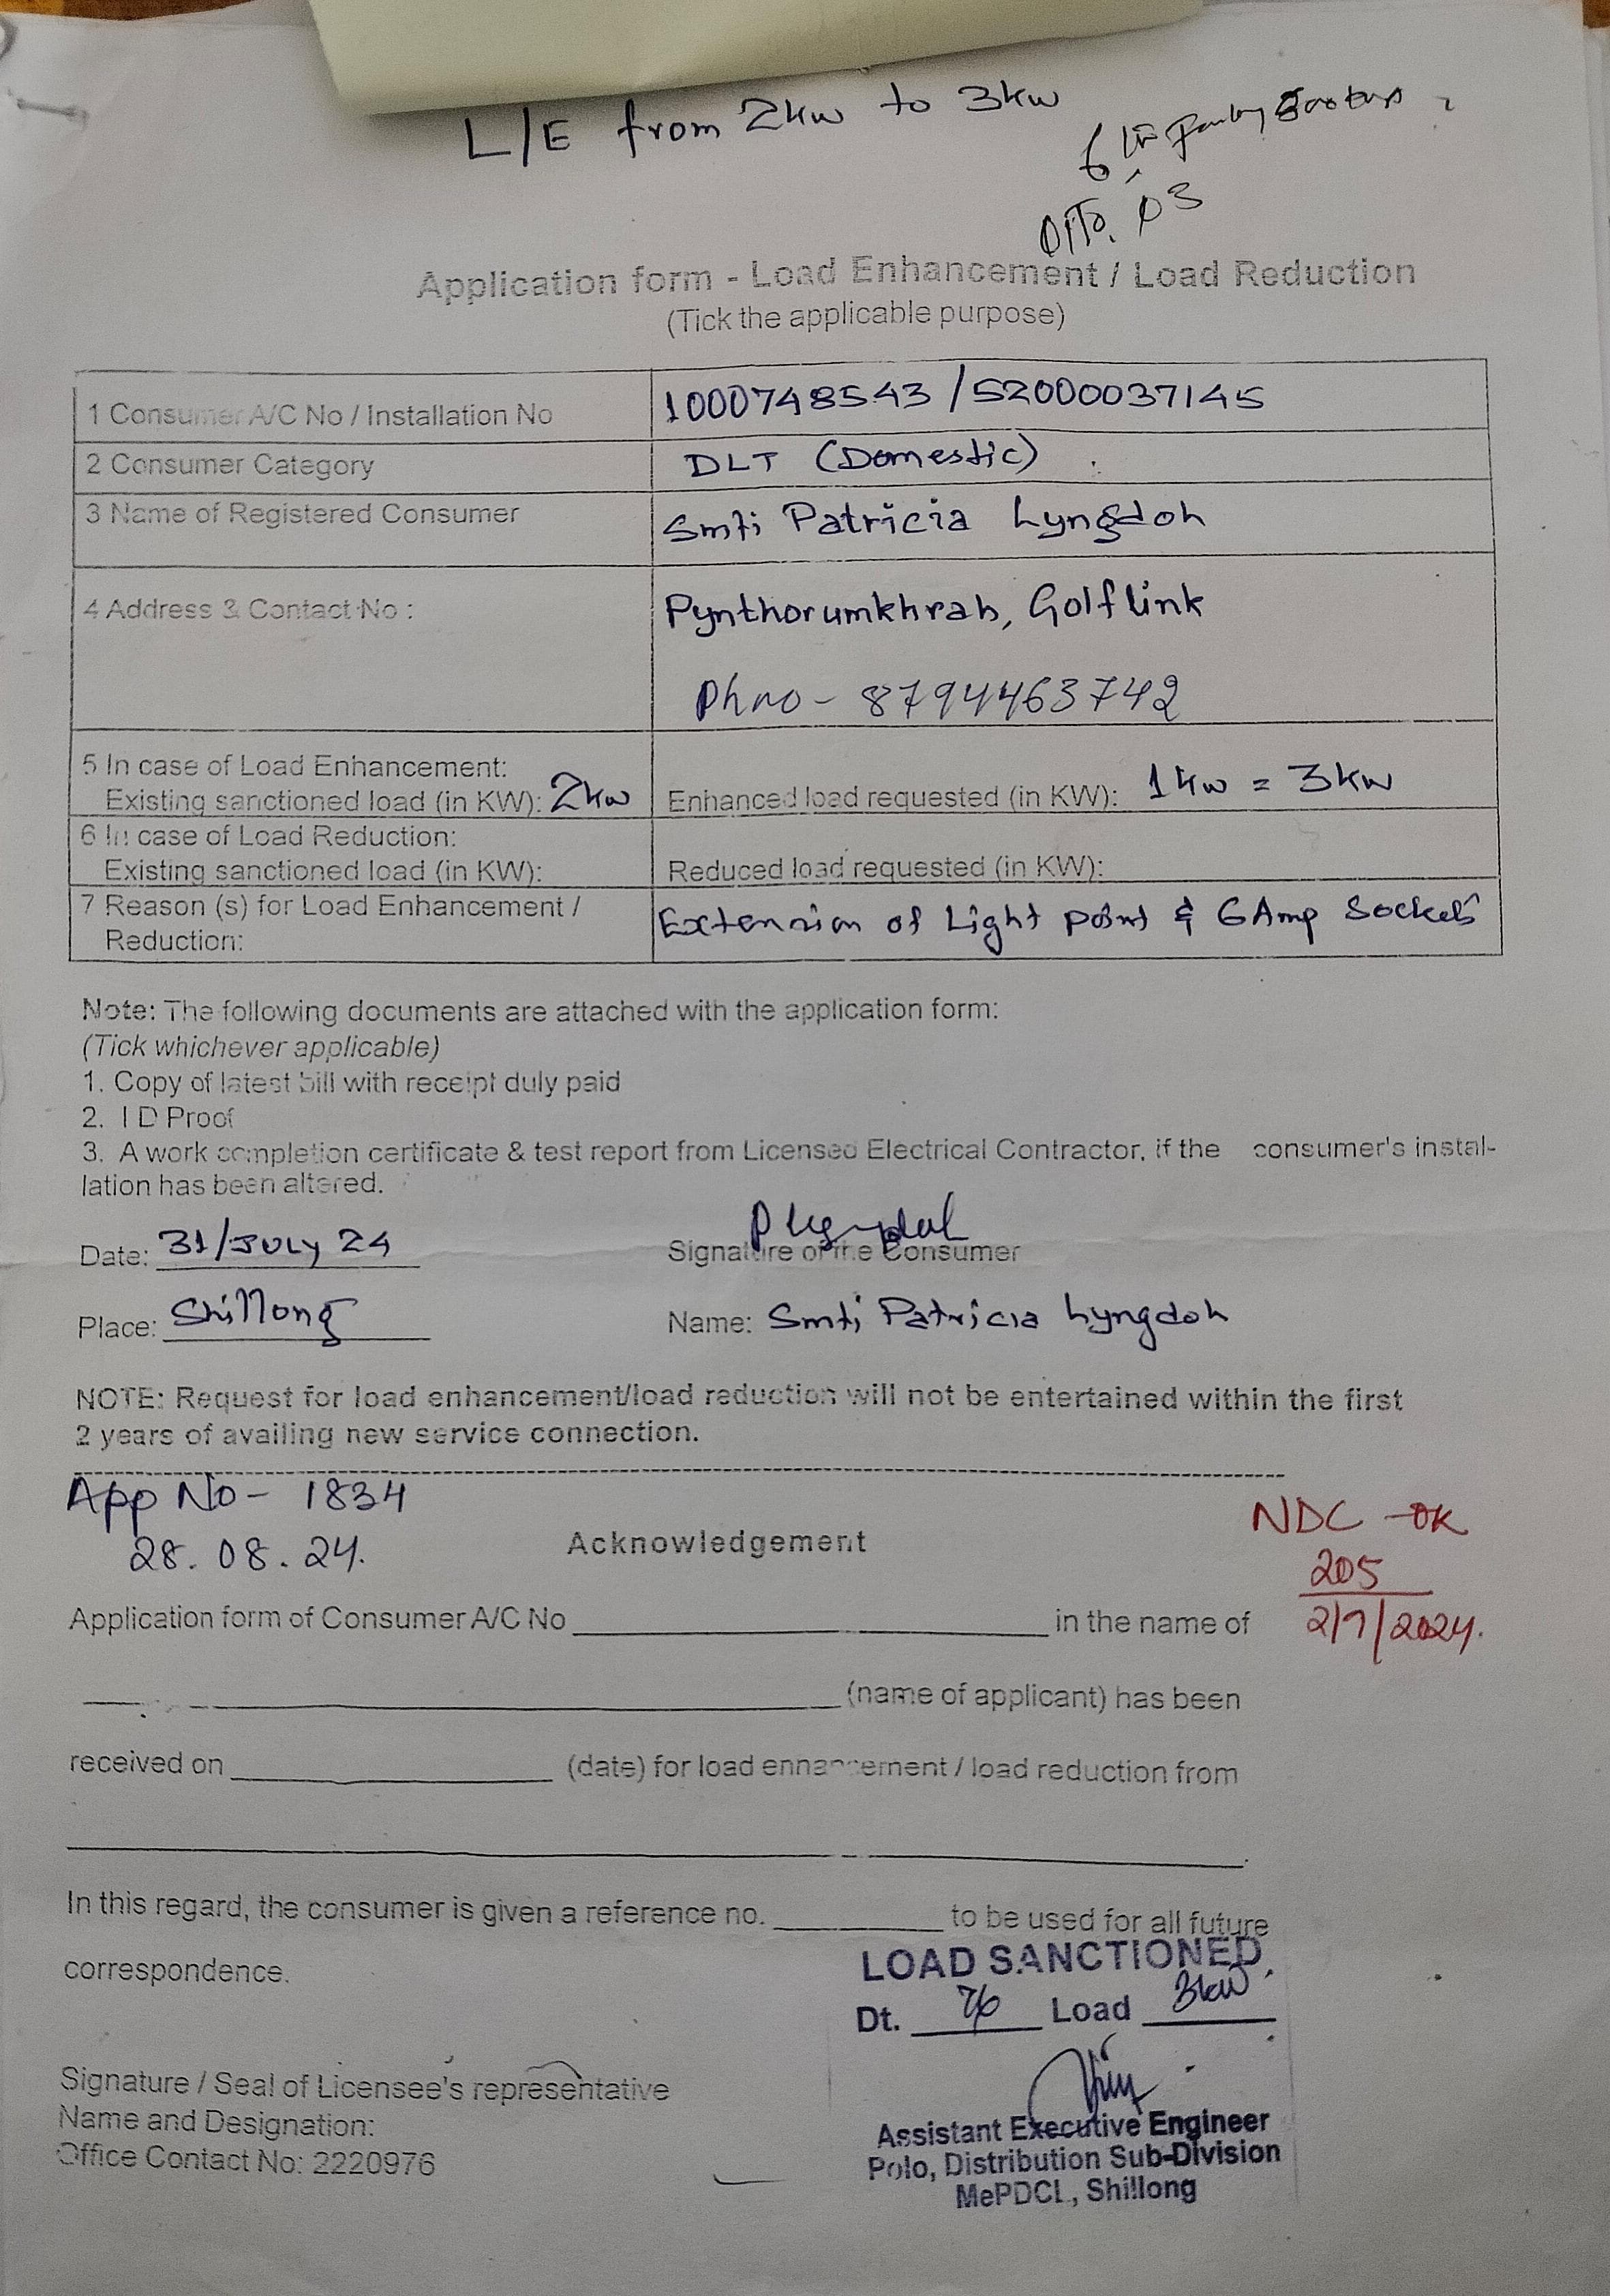 L/E from 2kw to 3kw
Application form - Load Enhancement / Load Reduction
(Tick the applicable purpose)
1 Consumer A/C No / Installation No 1000748543 / 52000037145
2 Consumer Category DLT (Domestic)
3 Name of Registered Consumer Smti Patricia Lyngdoh
4 Address & Contact No : Pynthorumkhrah, Golflink
Phno - 8794463742
5 In case of Load Enhancement:
Existing sanctioned load (in KW): 2kw Enhanced load requested (in KW): 1kw = 3kw
6 In case of Load Reduction:
Existing sanctioned load (in KW): Reduced load requested (in KW):
7 Reason (s) for Load Enhancement / Reduction: Extension of Light point & 6Amp Sockets
Note: The following documents are attached with the application form:
(Tick whichever applicable)
1. Copy of latest bill with receipt duly paid
2. I D Proof
3. A work completion certificate & test report from Licensed Electrical Contractor, if the consumer's instal-
lation has been altered.
Date: 31/JULY 24 Signature of the Consumer
Place: Shillong Name: Smti Patricia Lyngdoh
NOTE: Request for load enhancement/load reduction will not be entertained within the first
2 years of availing new service connection.
App No- 1834
28.08.24.
Acknowledgement
NDC - OK
205
2/7/2024.
Application form of Consumer A/C No in the name of
(name of applicant) has been
received on (date) for load enhancement / load reduction from
In this regard, the consumer is given a reference no. to be used for all future
correspondence.
LOAD SANCTIONED
Dt. Load 3kw
Signature / Seal of Licensee's representative
Name and Designation:
Office Contact No: 2220976
Assistant Executive Engineer
Polo, Distribution Sub-Division
MePDCL, Shillong